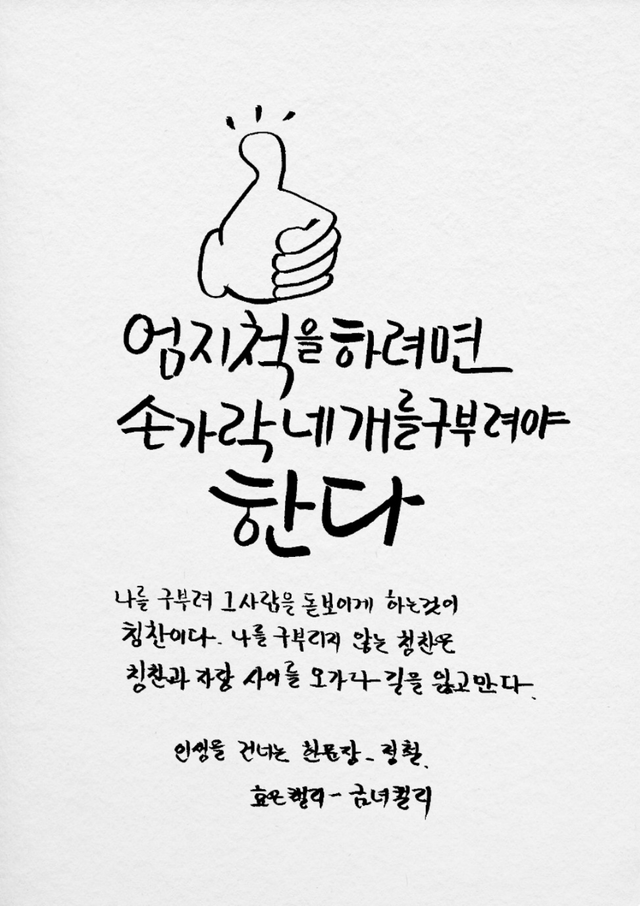 엄지척을 하려면
손가락 네 개를 구부려야
한다
나를 구부려 그 사람을 돋보이게 하는것이
칭찬이다. 나를 구부리지 않는 칭찬은
칭찬과 자랑 사이를 오가다 길을 잃고만다.
인생을 건너는 한문장 - 정철.
효은캘리 - 금녀캘리